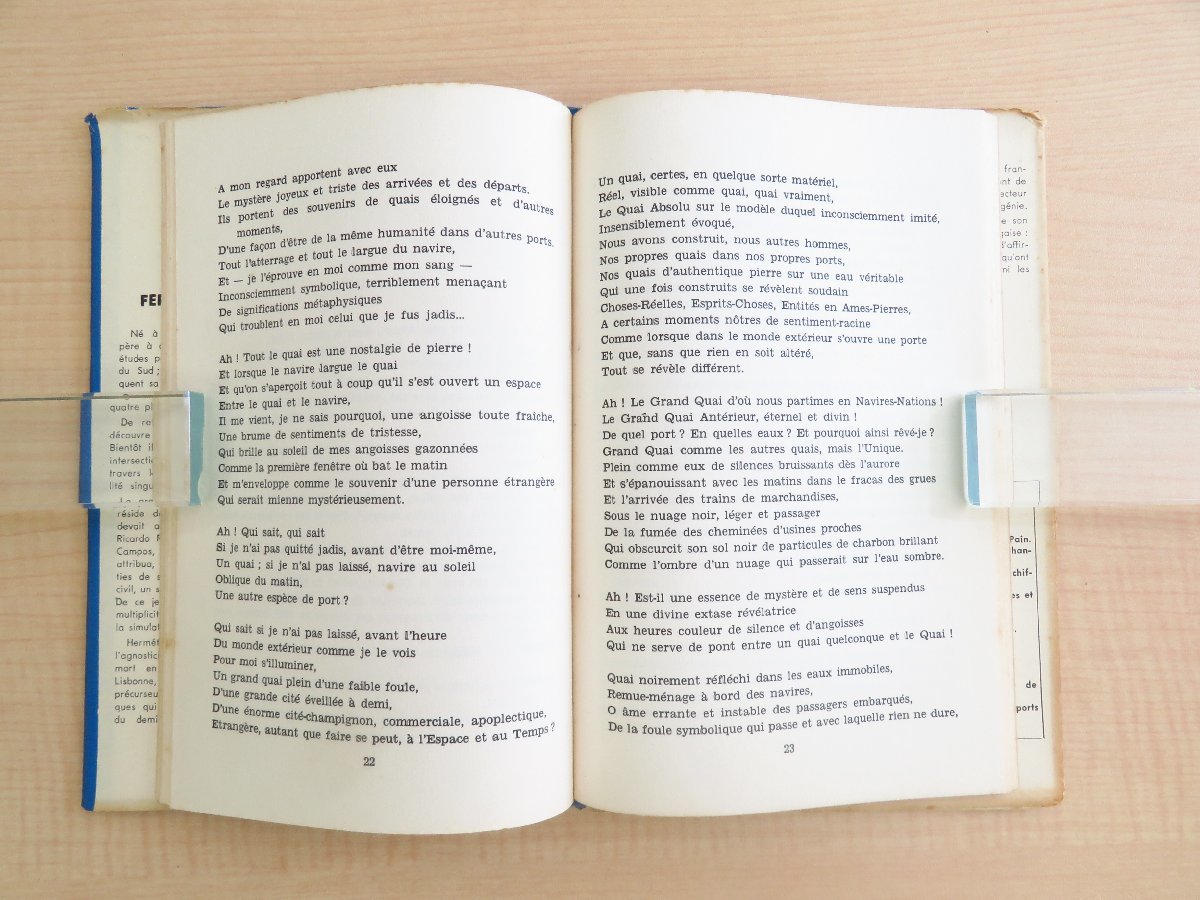 FER
Né à
père à
études p
du Sud ;
quent sa
quatre pl
De re
découvre
Bientôt il
intersecti
travers
lité singu
réside d
devait a
Ricardo R
Campos,
attribua,
ties de s
civil, un s
De ce je
multiplicit
la simulat
Hermét
l'agnostic
mort en
Lisbonne,
précurseu
ques qui
du demi
A mon regard apportent avec eux
Le mystère joyeux et triste des arrivées et des départs.
Ils portent des souvenirs de quais éloignés et d'autres
moments,
D'une façon d'être de la même humanité dans d'autres ports.
Tout l'atterrage et tout le largue du navire,
Et — je l'éprouve en moi comme mon sang —
Inconsciemment symbolique, terriblement menaçant
De significations métaphysiques
Qui troublent en moi celui que je fus jadis...
Ah ! Tout le quai est une nostalgie de pierre !
Et lorsque le navire largue le quai
Et qu'on s'aperçoit tout à coup qu'il s'est ouvert un espace
Entre le quai et le navire,
Il me vient, je ne sais pourquoi, une angoisse toute fraîche,
Une brume de sentiments de tristesse,
Qui brille au soleil de mes angoisses gazonnées
Comme la première fenêtre où bat le matin
Et m'enveloppe comme le souvenir d'une personne étrangère
Qui serait mienne mystérieusement.
Ah ! Qui sait, qui sait
Si je n'ai pas quitté jadis, avant d'être moi-même,
Un quai ; si je n'ai pas laissé, navire au soleil
Oblique du matin,
Une autre espèce de port ?
Qui sait si je n'ai pas laissé, avant l'heure
Du monde extérieur comme je le vois
Pour moi s'illuminer,
Un grand quai plein d'une faible foule,
D'une grande cité éveillée à demi,
D'une énorme cité-champignon, commerciale, apoplectique,
Etrangère, autant que faire se peut, à l'Espace et au Temps ?
22
Un quai, certes, en quelque sorte matériel,
Réel, visible comme quai, quai vraiment,
Le Quai Absolu sur le modèle duquel inconsciemment imité,
Insensiblement évoqué,
Nous avons construit, nous autres hommes,
Nos propres quais dans nos propres ports,
Nos quais d'authentique pierre sur une eau véritable
Qui une fois construits se révèlent soudain
Choses-Réelles, Esprits-Choses, Entités en Ames-Pierres,
A certains moments nôtres de sentiment-racine
Comme lorsque dans le monde extérieur s'ouvre une porte
Et que, sans que rien en soit altéré,
Tout se révèle différent.
Ah ! Le Grand Quai d'où nous partimes en Navires-Nations !
Le Grand Quai Antérieur, éternel et divin !
De quel port ? En quelles eaux ? Et pourquoi ainsi rêvé-je ?
Grand Quai comme les autres quais, mais l'Unique.
Plein comme eux de silences bruissants dès l'aurore
Et s'épanouissant avec les matins dans le fracas des grues
Et l'arrivée des trains de marchandises,
Sous le nuage noir, léger et passager
De la fumée des cheminées d'usines proches
Qui obscurcit son sol noir de particules de charbon brillant
Comme l'ombre d'un nuage qui passerait sur l'eau sombre.
Ah ! Est-il une essence de mystère et de sens suspendus
En une divine extase révélatrice
Aux heures couleur de silence et d'angoisses
Qui ne serve de pont entre un quai quelconque et le Quai !
Quai noirement réfléchi dans les eaux immobiles,
Remue-ménage à bord des navires,
O âme errante et instable des passagers embarqués,
De la foule symbolique qui passe et avec laquelle rien ne dure,
23
fran-
nt de
ecteur
génie.
e son
çaise :
d'affir-
qu'ont
ni les
Pain.
han-
chif-
es et
de
ports